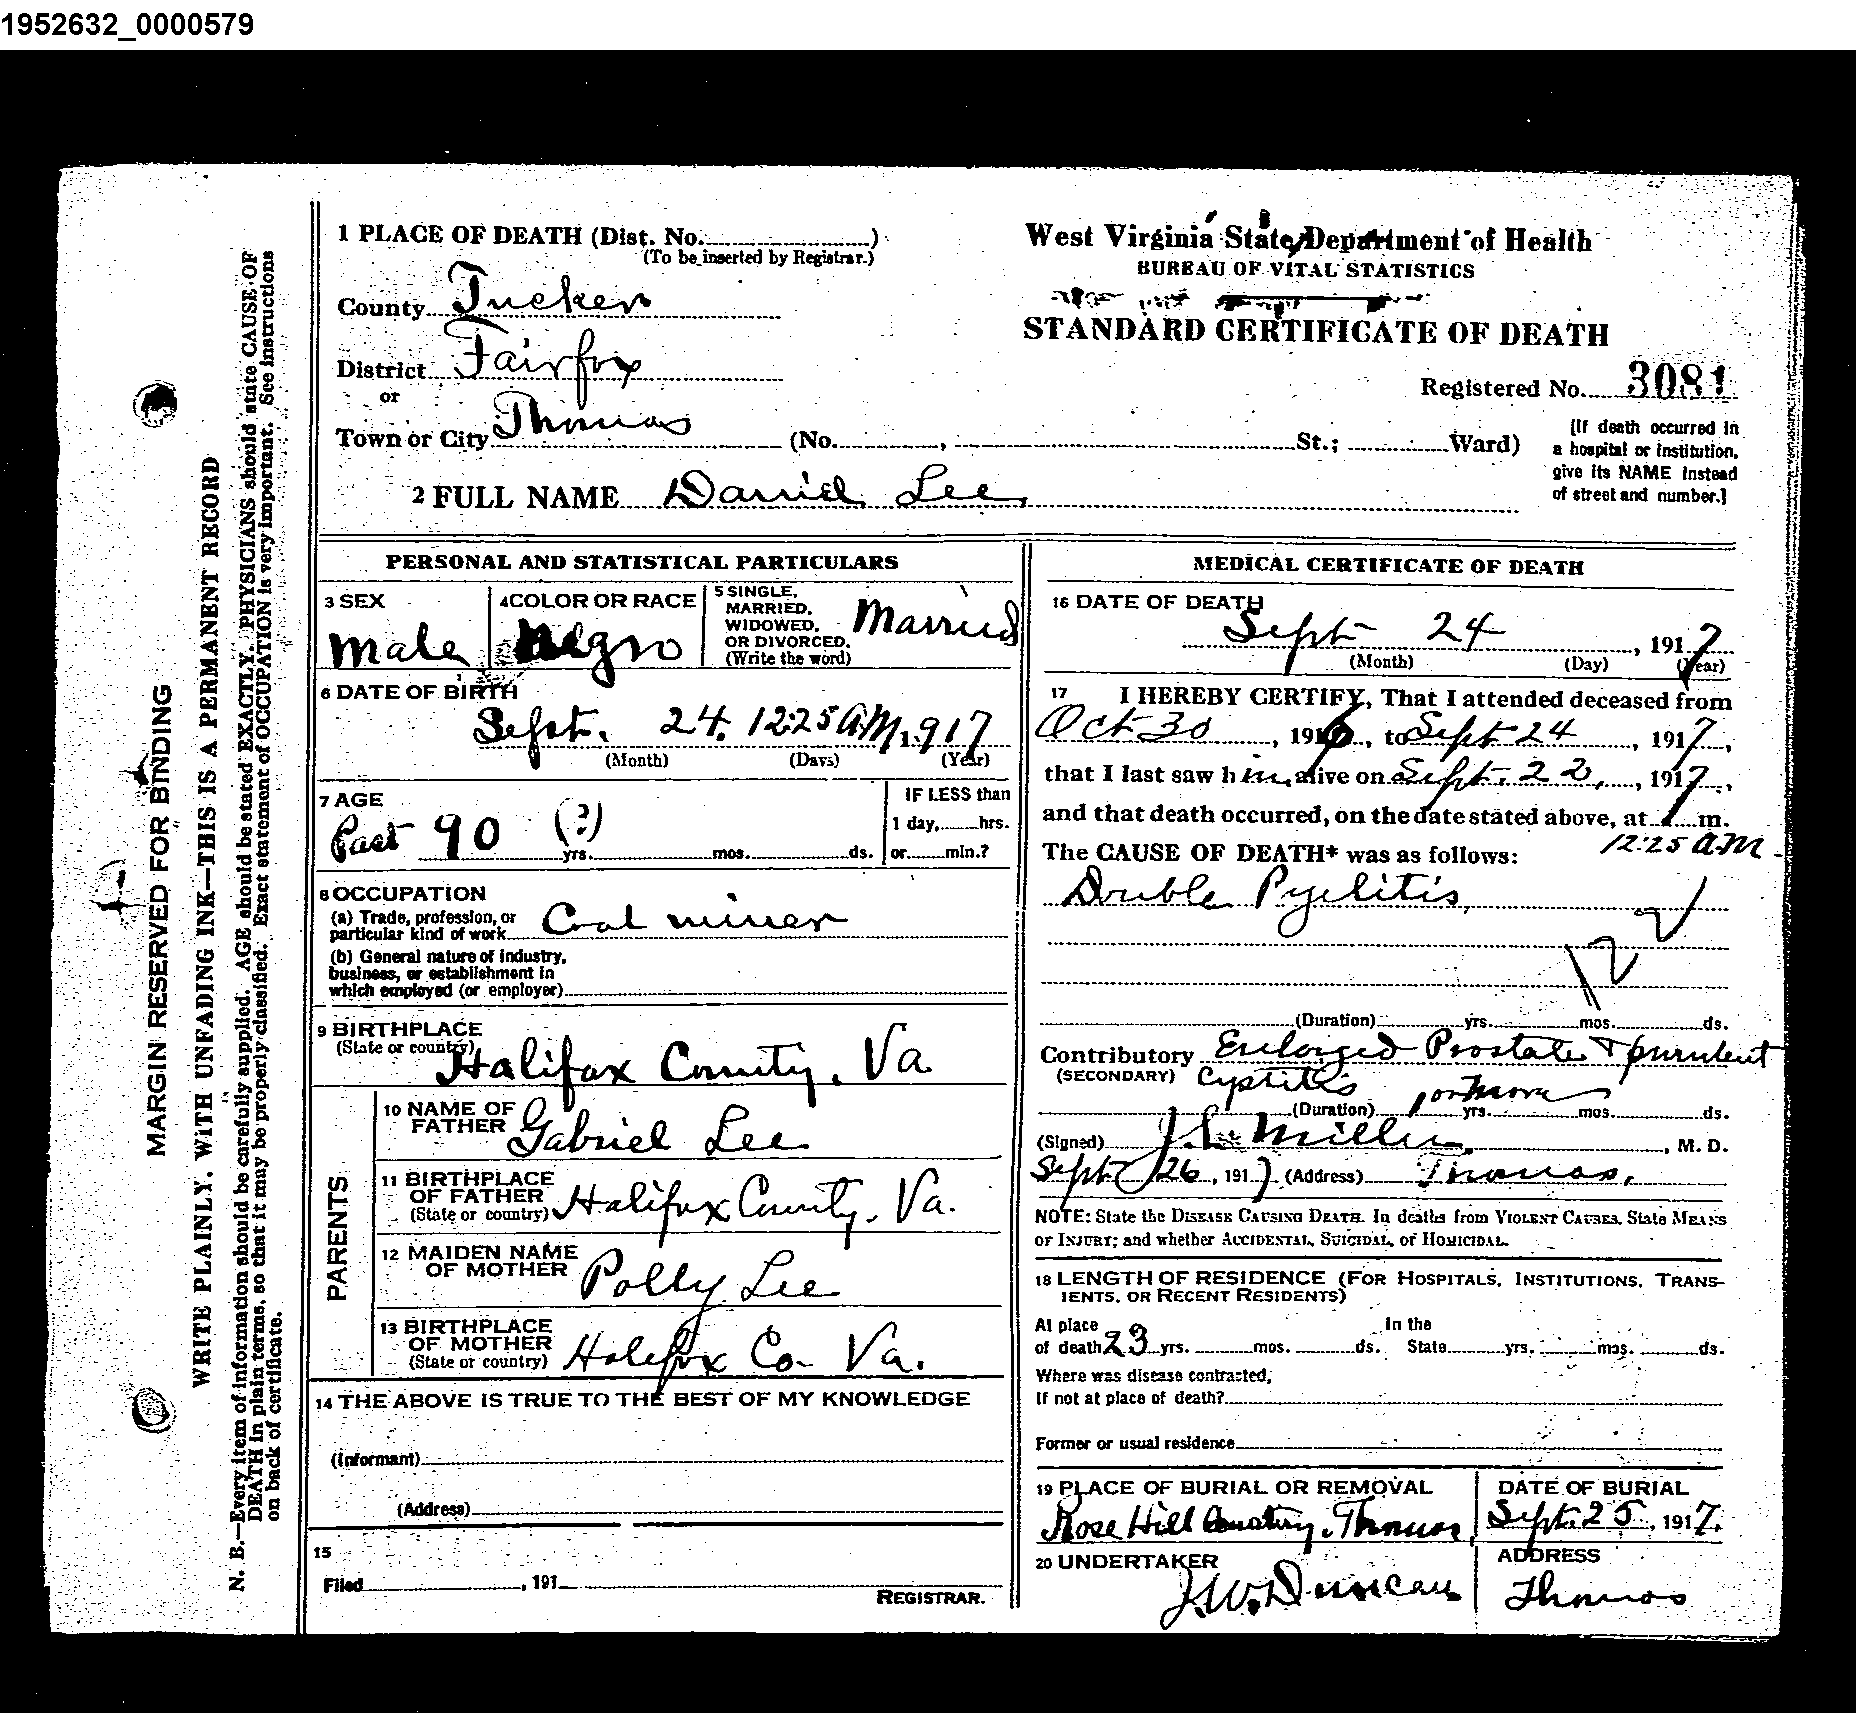 1952632_0000579
1 PLACE OF DEATH (Dist. No.
(To be inserted by Registrar.)
County Tucker
District Fairfax
or
Town or City Thomas (No. , St.; Ward)
2 FULL NAME Daniel Lee
West Virginia State Department of Health
BUREAU OF VITAL STATISTICS
STANDARD CERTIFICATE OF DEATH
Registered No. 3081
[If death occurred in
a hospital or institution,
give its NAME instead
of street and number.]
MARGIN RESERVED FOR BINDING
WRITE PLAINLY, WITH UNFADING INK—THIS IS A PERMANENT RECORD
N. B.—Every item of information should be carefully supplied. AGE should be stated EXACTLY. PHYSICIANS should state CAUSE OF
DEATH in plain terms, so that it may be properly classified. Exact statement of OCCUPATION is very important. See instructions
on back of certificate.
PERSONAL AND STATISTICAL PARTICULARS
3 SEX
Male
4 COLOR OR RACE
Negro
5 SINGLE,
MARRIED,
WIDOWED,
OR DIVORCED.
(Write the word)
Married
6 DATE OF BIRTH
Sept. 24. 12:25 A.M. 1917
(Month) (Days) (Year)
7 AGE
Past 90 (?)
yrs. mos. ds.
IF LESS than
1 day, hrs.
or min.?
8 OCCUPATION
(a) Trade, profession, or
particular kind of work Coal miner
(b) General nature of industry,
business, or establishment in
which employed (or employer)
9 BIRTHPLACE
(State or country) Halifax County, Va
PARENTS
10 NAME OF
FATHER Gabriel Lee
11 BIRTHPLACE
OF FATHER
(State or country) Halifax County, Va.
12 MAIDEN NAME
OF MOTHER Polly Lee
13 BIRTHPLACE
OF MOTHER
(State or country) Halifax Co- Va.
14 THE ABOVE IS TRUE TO THE BEST OF MY KNOWLEDGE
(Informant)
(Address)
15
Filed , 191
REGISTRAR.
MEDICAL CERTIFICATE OF DEATH
16 DATE OF DEATH
Sept 24 , 1917
(Month) (Day) (Year)
17 I HEREBY CERTIFY, That I attended deceased from
Oct 30 , 1916, to Sept 24 , 1917,
that I last saw him alive on Sept. 22, , 1917,
and that death occurred, on the date stated above, at m.
12:25 A.M
The CAUSE OF DEATH* was as follows:
Double Pyelitis,
(Duration) yrs. mos. ds.
Contributory Enlarged Prostate & purulent
(SECONDARY) Cystitis
(Duration) 1 or more yrs. mos. ds.
(Signed) J. L. Miller , M. D.
Sept 26, 1917 (Address) Thomas,
NOTE: State the DISEASE CAUSING DEATH. In deaths from VIOLENT CAUSES, State MEANS
OF INJURY; and whether ACCIDENTAL, SUICIDAL, or HOMICIDAL.
18 LENGTH OF RESIDENCE (FOR HOSPITALS, INSTITUTIONS, TRANS-
IENTS, OR RECENT RESIDENTS)
At place In the
of death 23 yrs. mos. ds. State yrs. mos. ds.
Where was disease contracted,
If not at place of death?
Former or usual residence
19 PLACE OF BURIAL OR REMOVAL
Rose Hill Cemetery, Thomas,
DATE OF BURIAL
Sept. 25 , 1917.
20 UNDERTAKER
J. W. Duncan
ADDRESS
Thomas